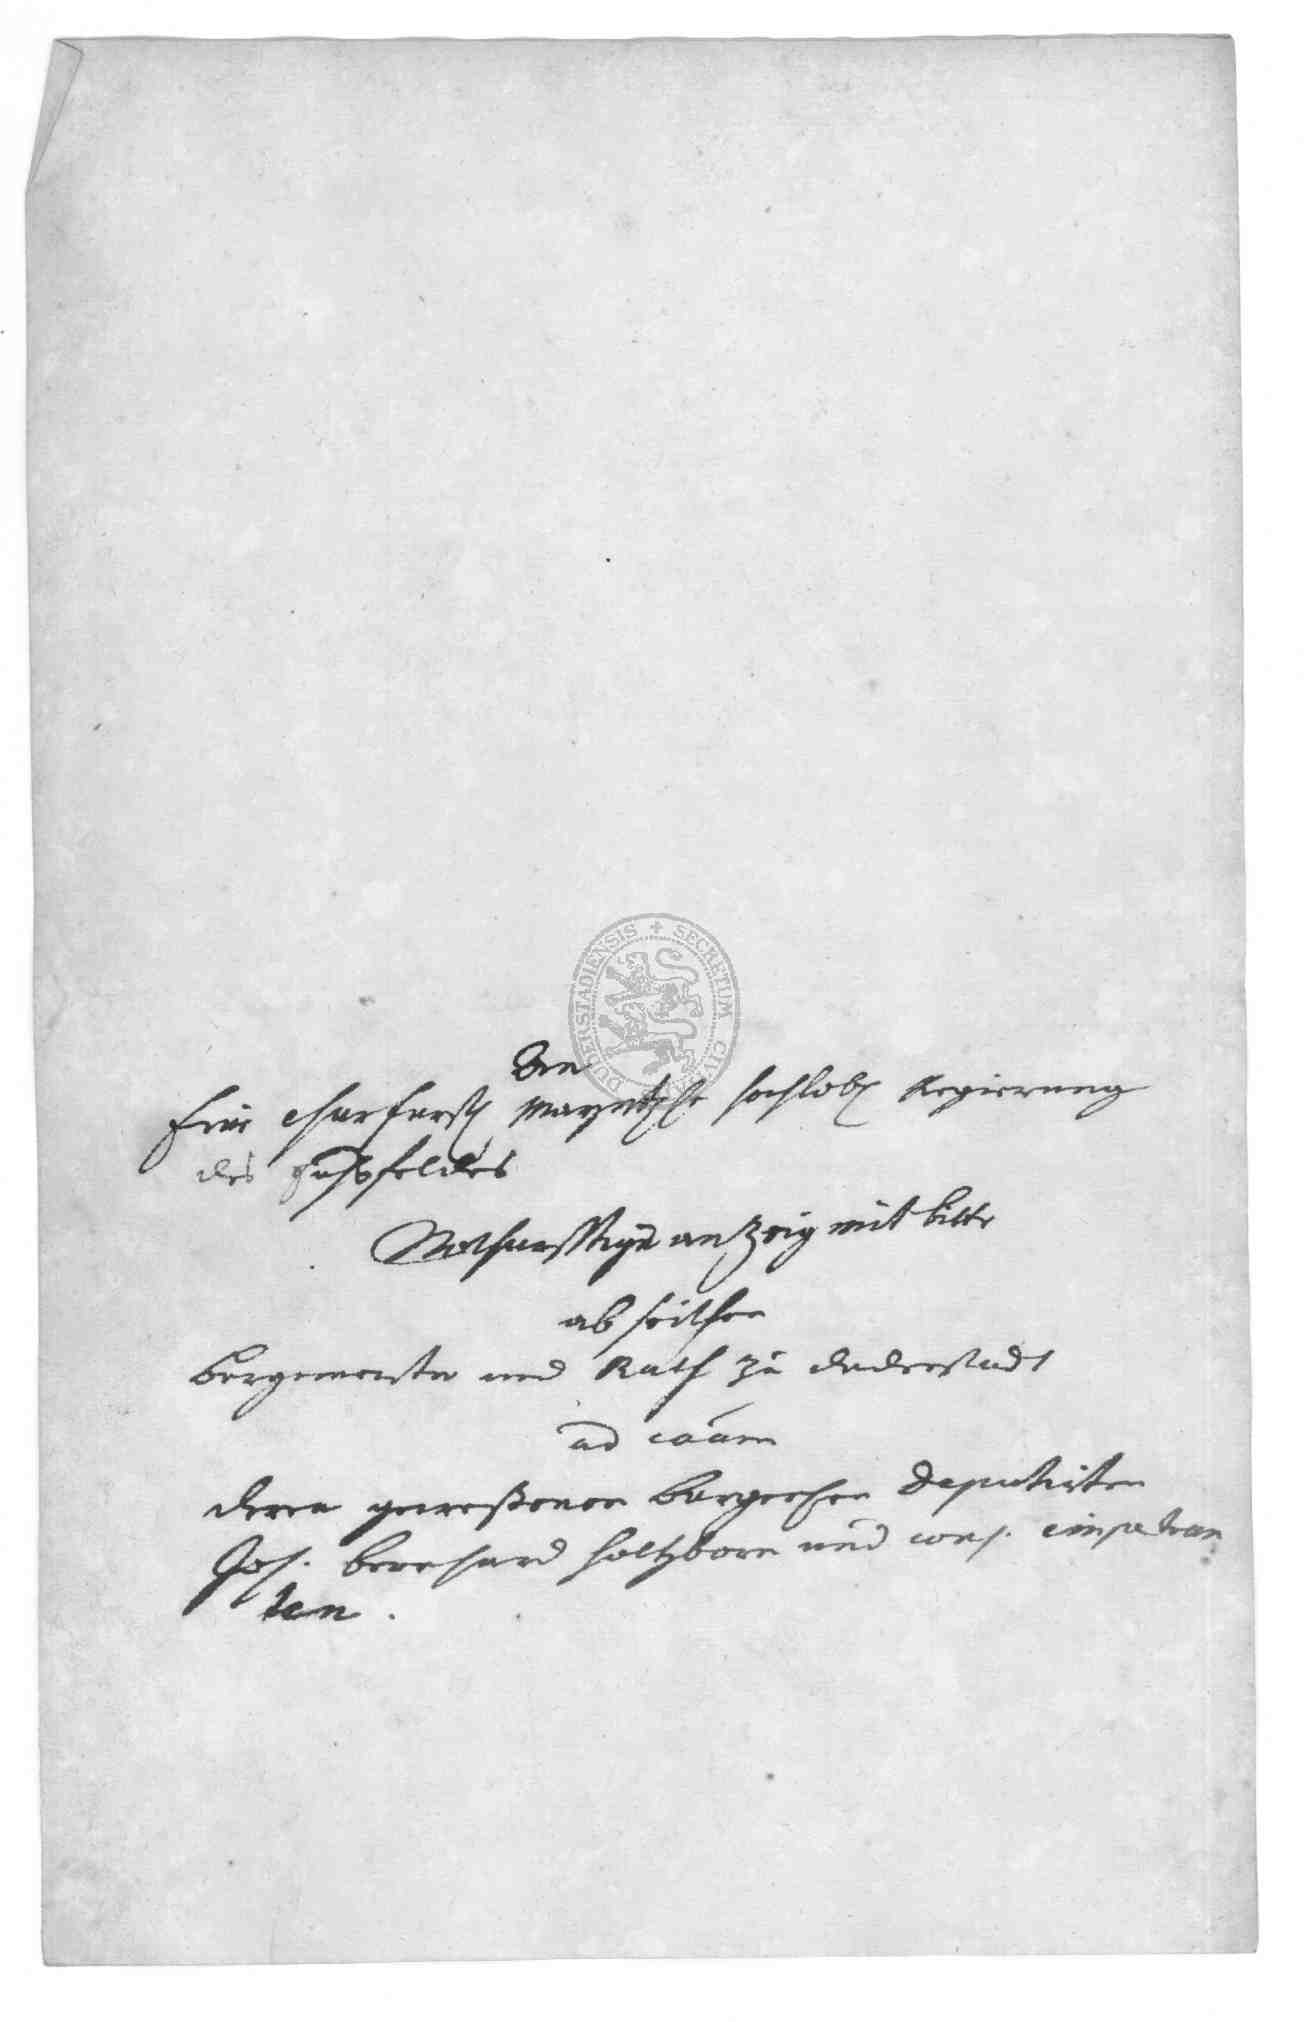 DUDERSTADIENSIS + SECRETUM CIVI
An
Eine Churfürstl Mayntzische hochlobl Regierung
des Eichsfeldes
Nothdürfftige anZeig mit bitte
ab seithen
Bürgemeister und Rath zu duderstadt
ad cãam
deren gewesenen Bürgerschen Deputirten
Joh. Bernhard Holtzborn und cons. impetran
ten.